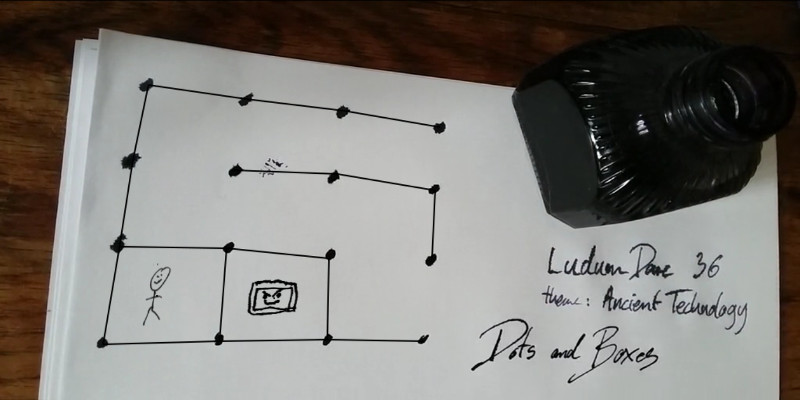 Ludum Dare 36
theme: Ancient Technology
Dots and Boxes